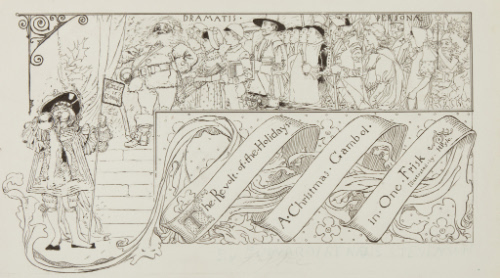 DRAMATIS · PERSONÆ
The Revolt · of · the · Holiday ·
A · Christmas · Gambol ·
in · One · Frisk